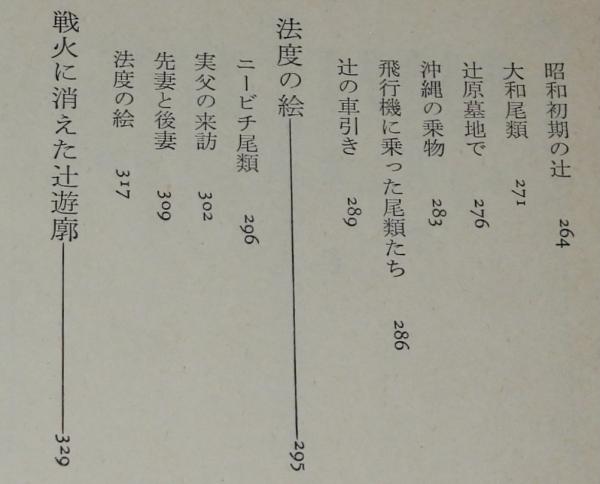 昭和初期の辻 264
大和尾類 271
辻原墓地で 276
沖縄の乗物 283
飛行機に乗った尾類たち 286
辻の車引き 289
法度の絵 295
ニービチ尾類 296
実父の来訪 302
先妻と後妻 309
法度の絵 317
戦火に消えた辻遊廓 329